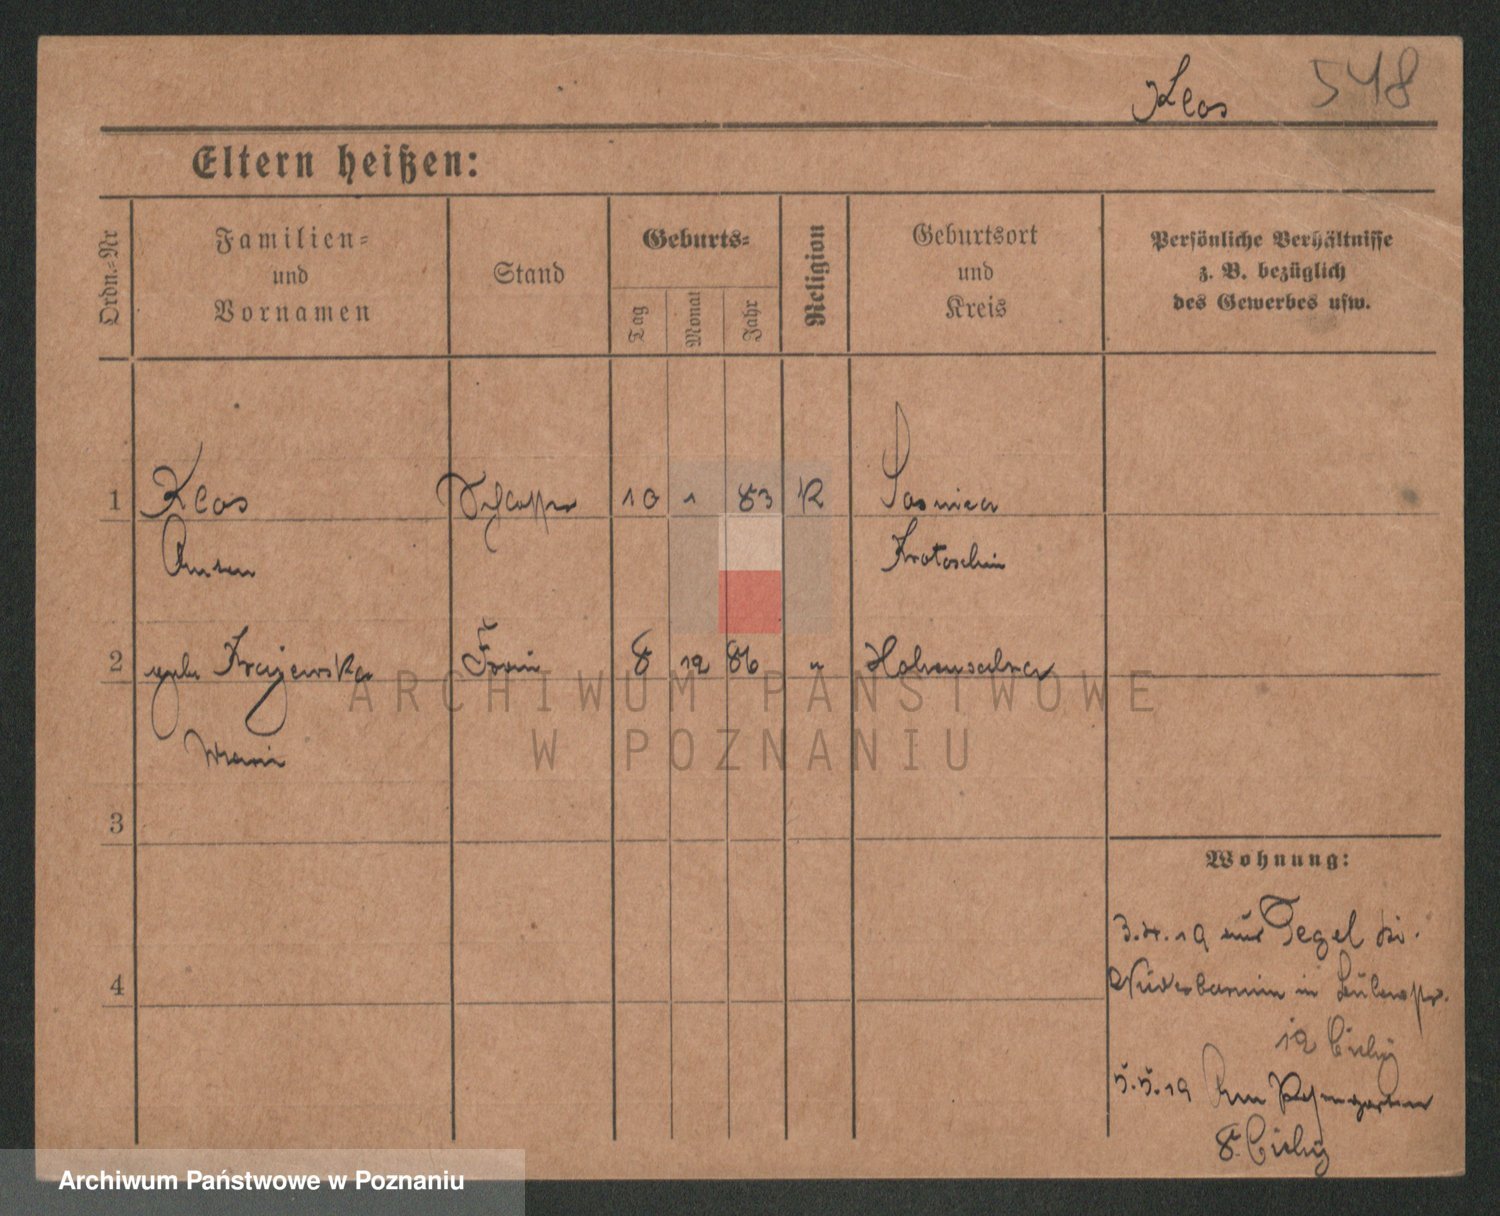 Klos 548
Eltern heißen:
Ordn.=Nr
Familien=
und
Vornamen
Stand
Geburts=
Tag
Monat
Jahr
Religion
Geburtsort
und
Kreis
Persönliche Verhältnisse
z. B. bezüglich
des Gewerbes usw.
1 Klos Schlosser 10 1 83 K
Anton Krotoschin
2 geb. Krajewska Frau 8 12 86 " Hohensalza
ARCHIWUM PAŃSTWOWE
W POZNANIU
3
4
Wohnung:
3.4.19 aus Tegel
Niederbarnim in
12 Cichy
5.5.19 Am
8. Cichy
Archiwum Państwowe w Poznaniu